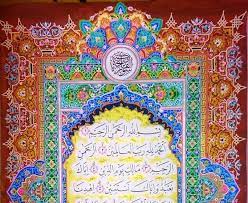 بسم الله الرحمن الرحيم
الحمد لله رب العالمين الرحمن
الرحيم مالك يوم الدين إياك
نعبد وإياك نستعين اهدنا